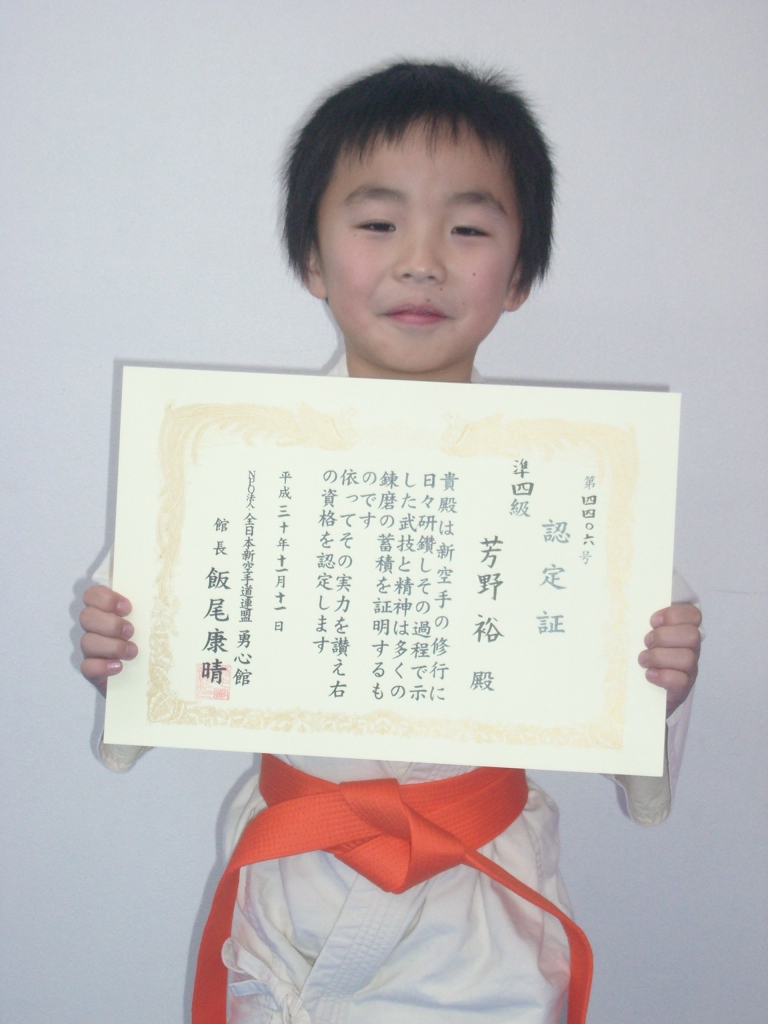 第四四〇六号
認定証
準四級
芳野裕 殿
貴殿は新空手の修行に
日々研鑽しその過程で示
した武技と精神は多くの
錬磨の蓄積を証明するも
のです
依ってその実力を讃え右
の資格を認定します
平成三十年十一月十一日
NPO法人 全日本新空手道連盟 勇心館
館長 飯尾康晴